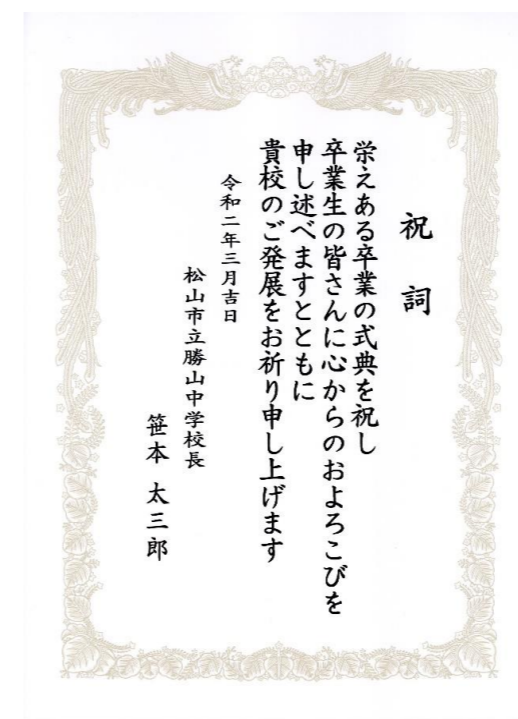 祝詞
栄えある卒業の式典を祝し
卒業生の皆さんに心からのおよろこびを
申し述べますとともに
貴校のご発展をお祈り申し上げます
令和二年三月吉日
松山市立勝山中学校長
笹本 太三郎